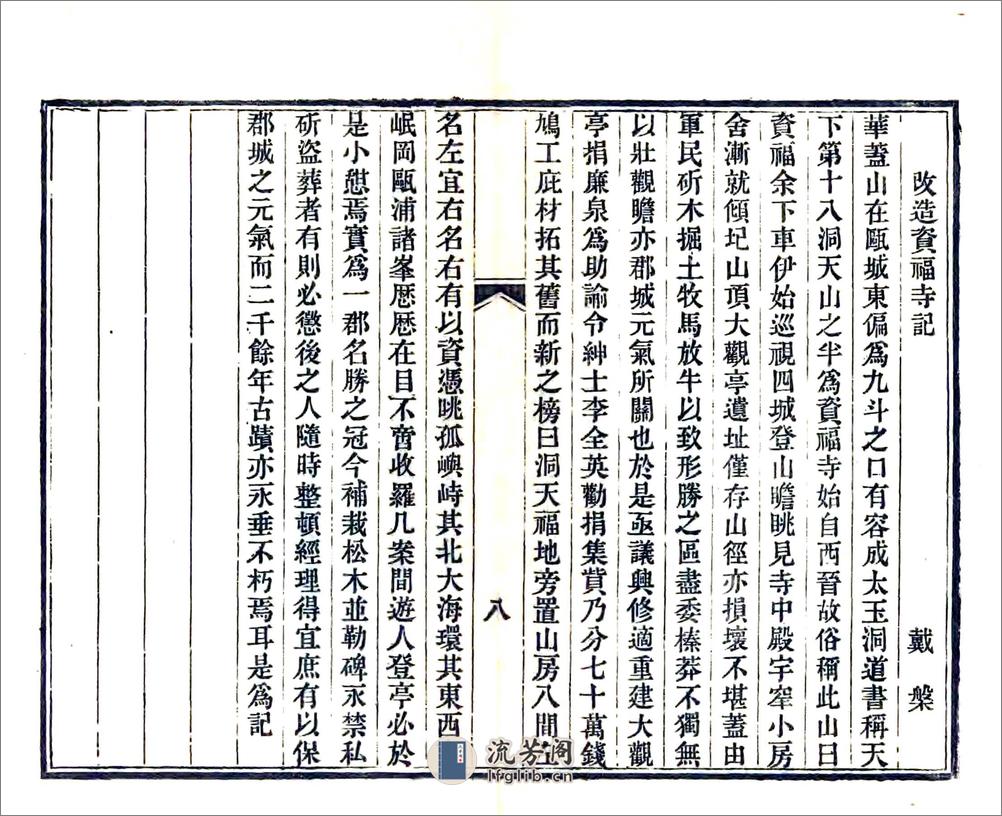 改造資福寺記 戴槃
華蓋山在甌城東偏為九斗之口有容成太玉洞道書稱天
下第十八洞天山之半為資福寺始自西晉故俗稱此山曰
資福余下車伊始巡視四城登山瞻眺見寺中殿宇窄小房
舍漸就傾圮山頂大觀亭遺址僅存山徑亦損壞不堪蓋由
軍民斫木掘土牧馬放牛以致形勝之區盡委榛莽不獨無
以壯觀瞻亦郡城元氣所關也於是亟議興修適重建大觀
亭捐廉泉為助諭令紳士李全英勸捐集貲乃分七十萬錢
鳩工庀材拓其舊而新之榜曰洞天福地旁置山房八間
八
名左宜右名右有以資憑眺孤嶼峙其北大海環其東西
岷岡甌浦諸峯歷歷在目不啻收羅几案間遊人登亭必於
是小憩焉實為一郡名勝之冠今補栽松木並勒碑永禁私
斫盜葬者有則必懲後之人隨時整頓經理得宜庶有以保
郡城之元氣而二千餘年古蹟亦永垂不朽焉耳是為記
流芳阁
lfglib.cn